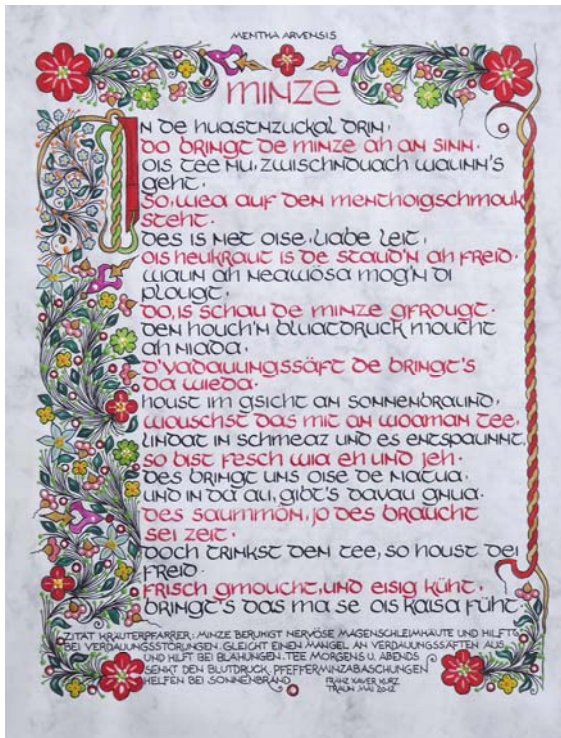 MENTHA ARVENSIS
MINZE
IN DE HUASTNZUCKAL DRIN,
DO BRINGT DE MINZE AH AN SINN.
OIS TEE NU, ZWISCHNDUACH WAUNN'S
GEHT,
SO, WIA AUF DEN MENTHOIGSCHMOUK
STEHT.
DES IS NET OISE, LIABE LEIT,
OIS HEUKRAUT IS DE STAUD'N AH FREID.
WAUN AH NEAWÖSA MOG'N DI
PLOUGT,
DO, IS SCHAU DE MINZE GFROUGT.
DEN HOUCH'N BLUATDRUCK MOUCHT
AH NIADA,
D'VADAUUNGSSÄFT DE BRINGT'S
DA WIEDA.
HOUST IM GSICHT AN SONNENBRAUND,
WOUSCHST DAS MIT AN WOAMAN TEE,
LINDAT IN SCHMEAZ UND ES ENTSPAUNNT,
SO BIST FESCH WIA EH UND JEH.
DES BRINGT UNS OISE DE NATUA,
UND IN DA AU, GIBT'S DAVAU GNUA.
DES SAUMMÖN, JO DES BRAUCHT
SEI ZEIT,
DOCH TRINKST DEN TEE, SO HOUST DEI
FREID.
FRISCH GMOUCHT, UND EISIG KÜHT,
BRINGT'S DAS MA SE OIS KAISA FÜHT.
ZITAT KRÄUTERPFARRER: MINZE BERUHIGT NERVÖSE MAGENSCHLEIMHÄUTE UND HILFT
BEI VERDAUUNGSSTÖRUNGEN. GLEICHT EINEN MANGEL AN VERDAUUNGSSÄFTEN AUS
UND HILFT BEI BLÄHUNGEN. TEE MORGENS U. ABENDS
SENKT DEN BLUTDRUCK, PFEFFERMINZABASCHUNGEN
HELFEN BEI SONNENBRAND
FRANZ XAVER KURZ
TRAUN MAI 2012